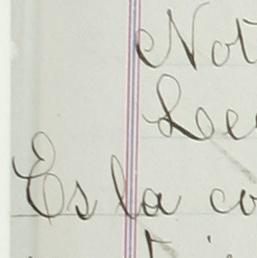 Not
Lee
Es la co